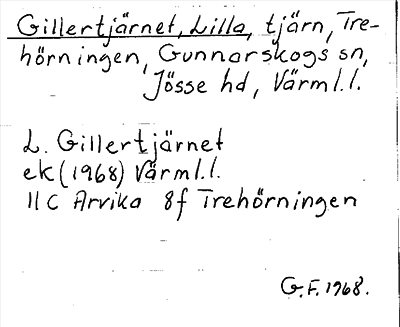 Gillertjärnet, Lilla, tjärn, Tre-
hörningen, Gunnarskogs sn,
Jösse hd, Värml.l.
L. Gillertjärnet
ek (1968) Värml.l.
11C Arvika 8f Trehörningen
G.F. 1968.